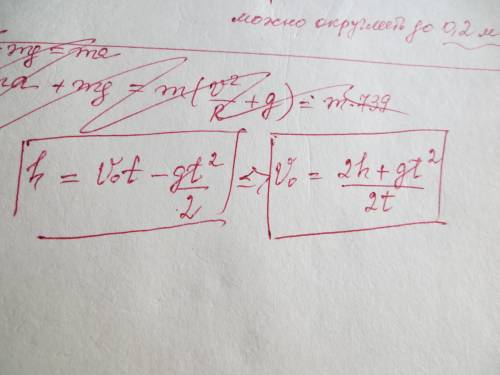 можно округлить до 0,2 м
mg = ma
ma + mg = m(v²/R + g) = m·739
h = V₀t − gt²/2 => V₀ = (2h + gt²)/2t